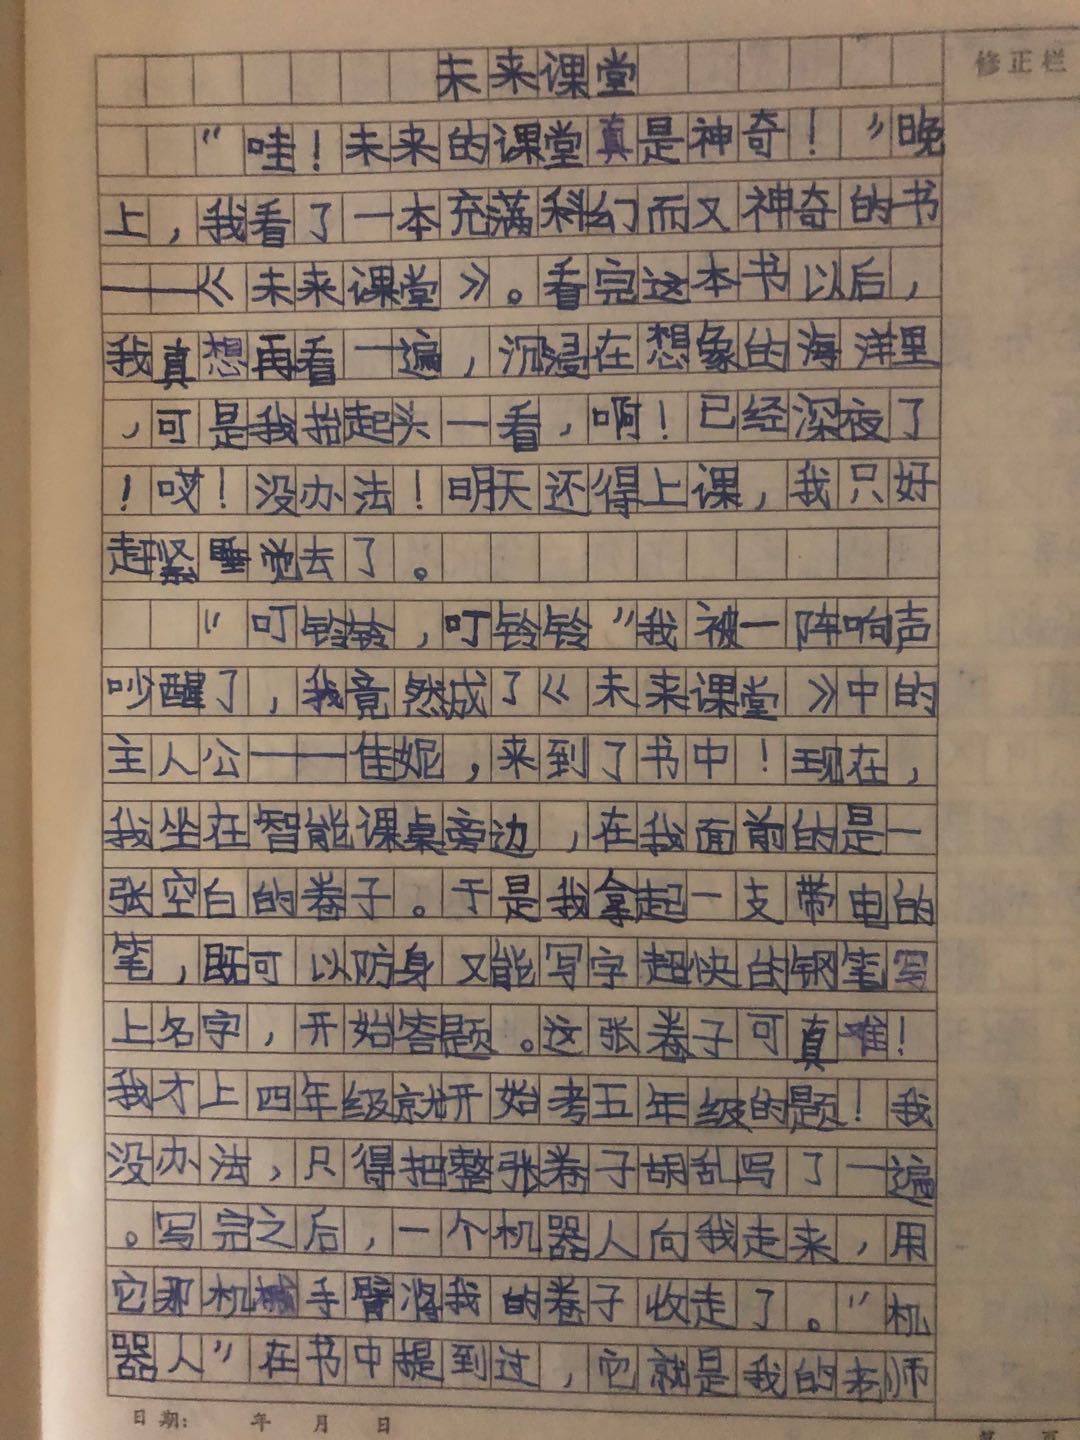 未来课堂
修正栏
“哇！未来的课堂真是神奇！”晚
上，我看了一本充满科幻而又神奇的书
——《未来课堂》。看完这本书以后，
我真想再看一遍，沉浸在想象的海洋里
，可是我抬起头一看，啊！已经深夜了
！哎！没办法！明天还得上课，我只好
赶紧睡觉去了。
“叮铃铃，叮铃铃”我被一阵响声
吵醒了，我竟然成了《未来课堂》中的
主人公——佳妮，来到了书中！现在，
我坐在智能课桌旁边，在我面前的是一
张空白的卷子。于是我拿起一支带电的
笔，既可以防身又能写字超快的钢笔写
上名字，开始答题。这张卷子可真难！
我才上四年级就开始考五年级的题！我
没办法，只得把整张卷子胡乱写了一遍
。写完之后，一个机器人向我走来，用
它那机械手臂将我的卷子收走了。“机
器人”在书中提到过，它就是我的老师
日期： 年 月 日
第 页